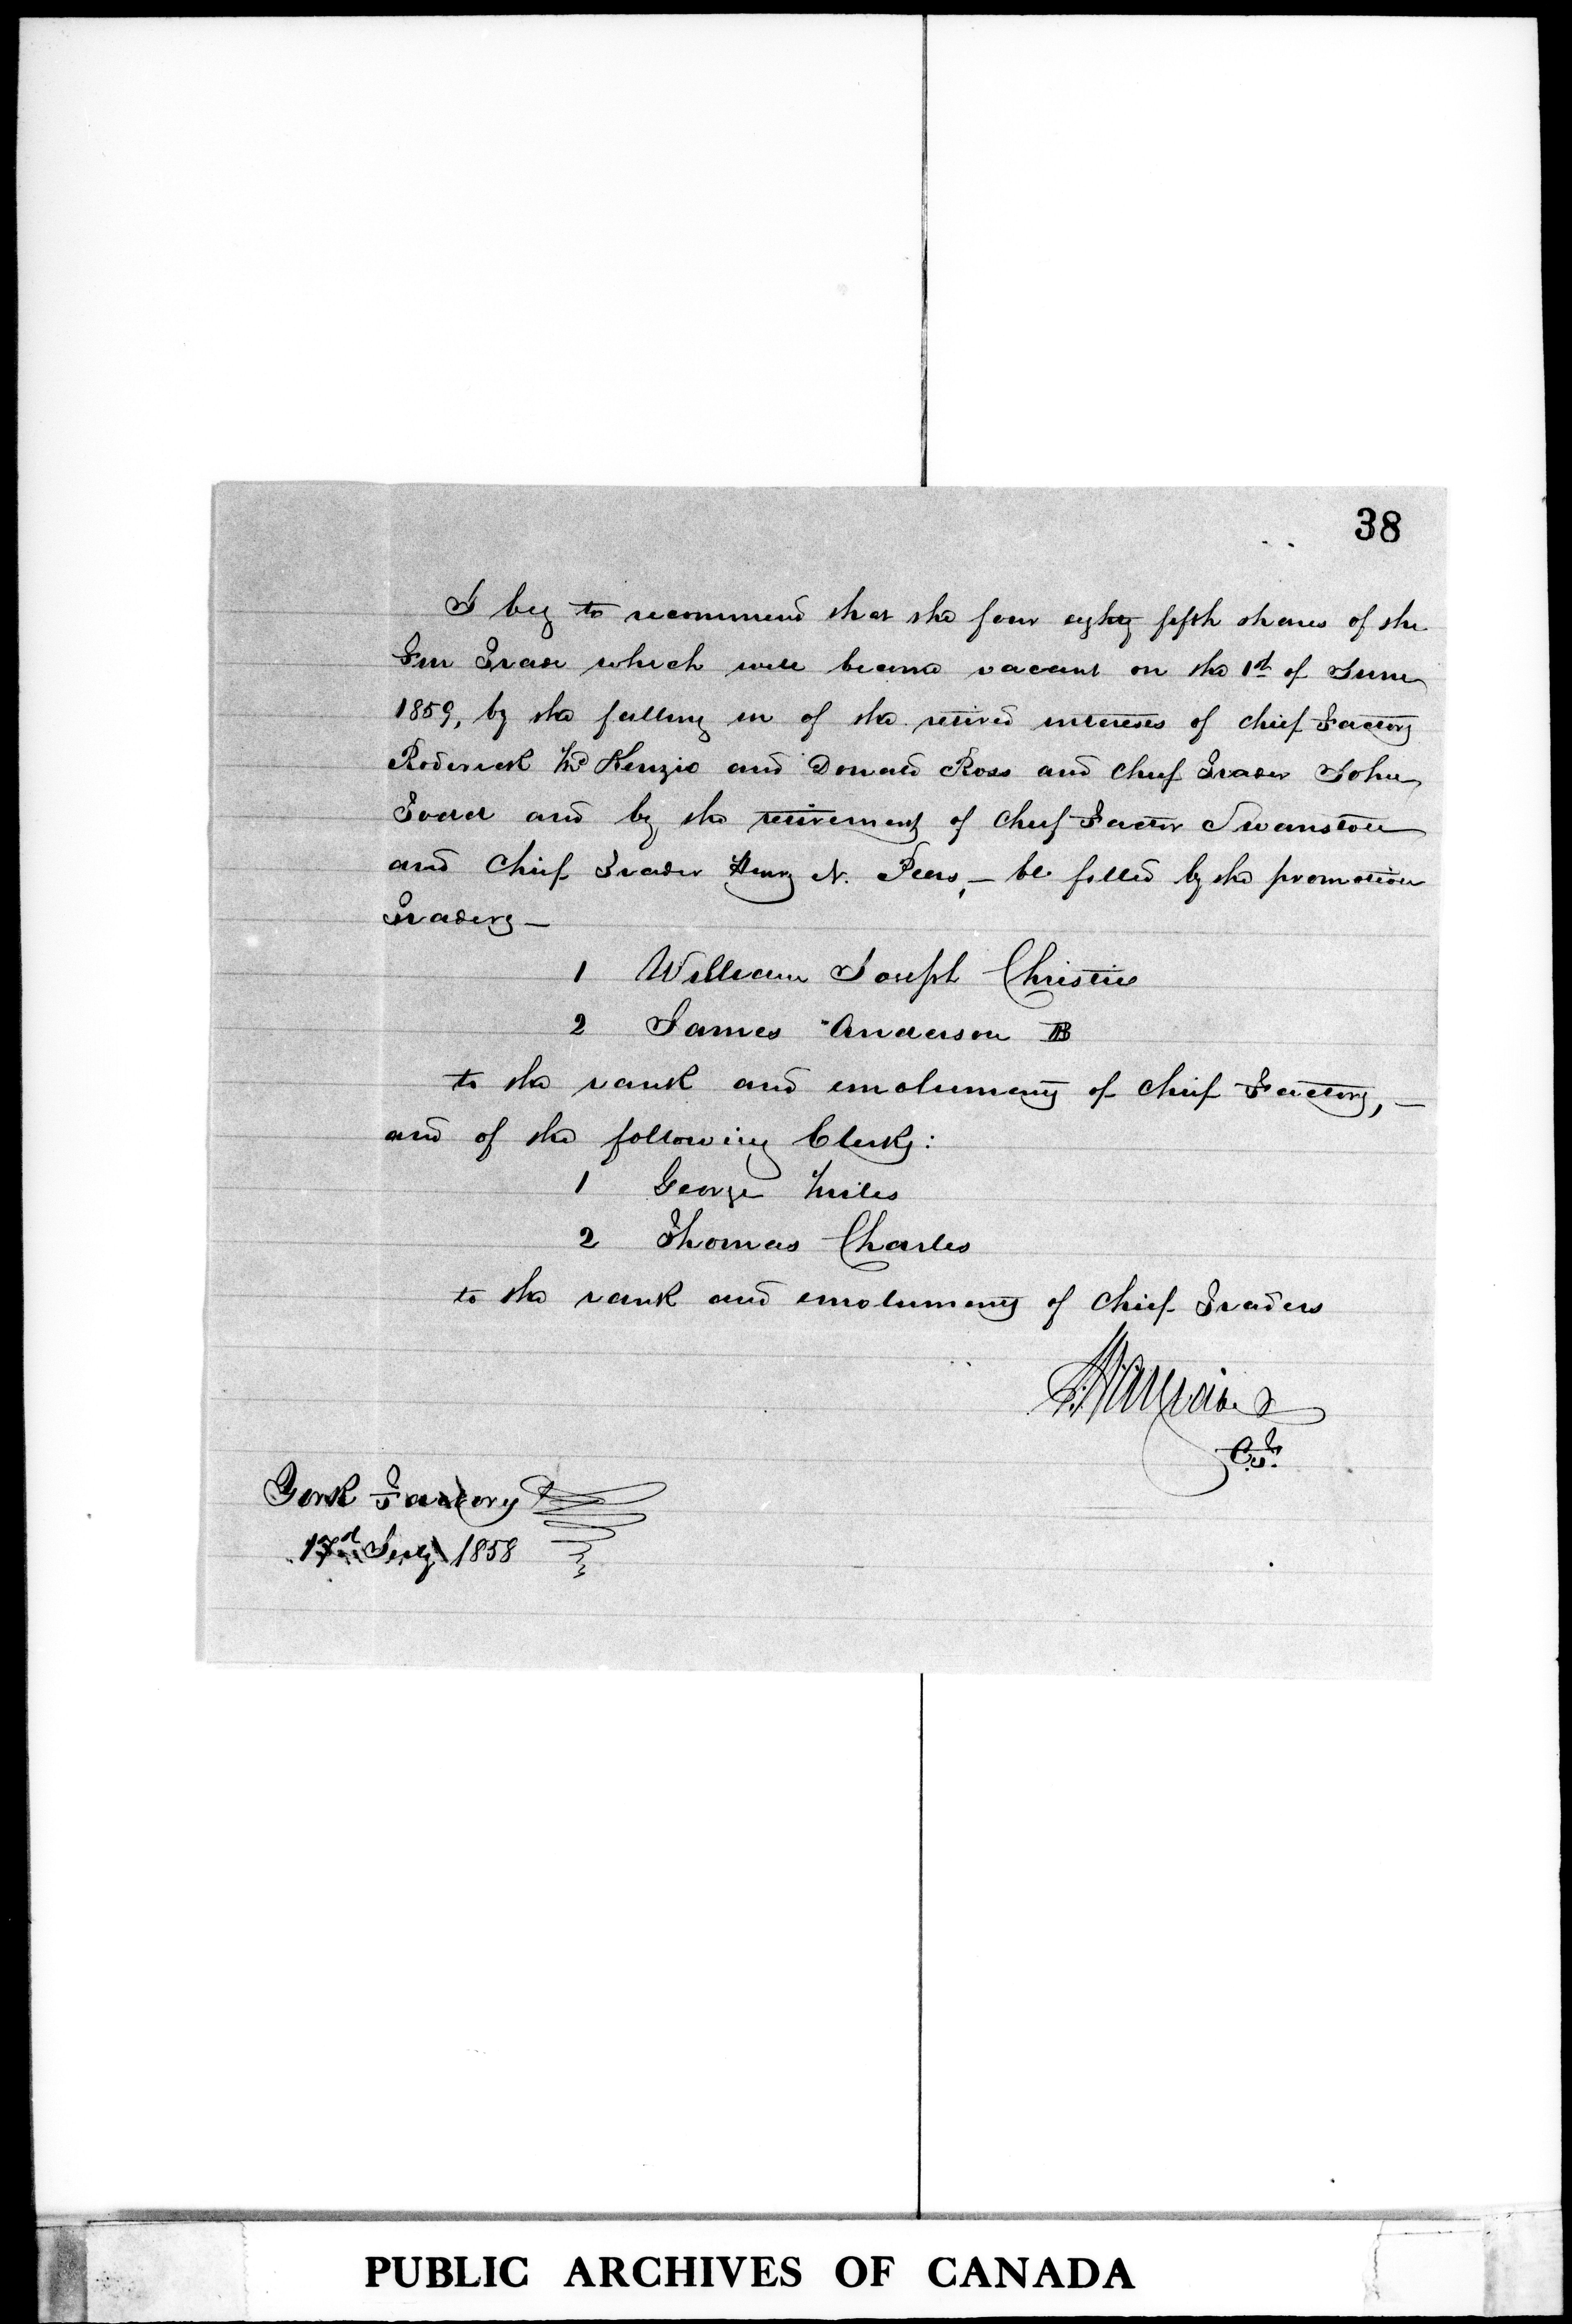 38
I beg to recommend that the four eighty fifth shares of the
Fur Trade which will become vacant on the 1st of June
1859, by the falling in of the retired interests of Chief Factors
Roderick McKenzie and Donald Ross and Chief Trader John
Tod and by the retirement of Chief Factor Swanston
and Chief Trader Henry N. Peers, – be filled by the promotion
Traders –
1 William Joseph Christie
2 James Anderson B
to the rank and emoluments of Chief Factors, –
and of the following Clerks:
1 George Miles
2 Thomas Charles
to the rank and emoluments of Chief Traders
C.T.
York Factory
July 1858
PUBLIC ARCHIVES OF CANADA